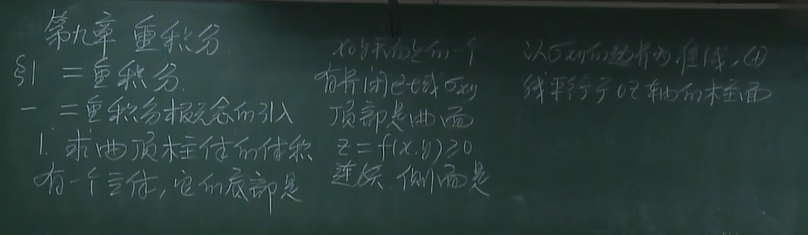 第九章 重积分
§1 二重积分.
一 二重积分概念的引入
1. 求曲顶柱体的体积
有一个立体,它的底部是
xoy平面上的一个
有界闭区域σxy
顶部是曲面
z=f(x.y)≥0
连续.侧面是
以σxy的边界为准线,母
线平行于oz轴的柱面